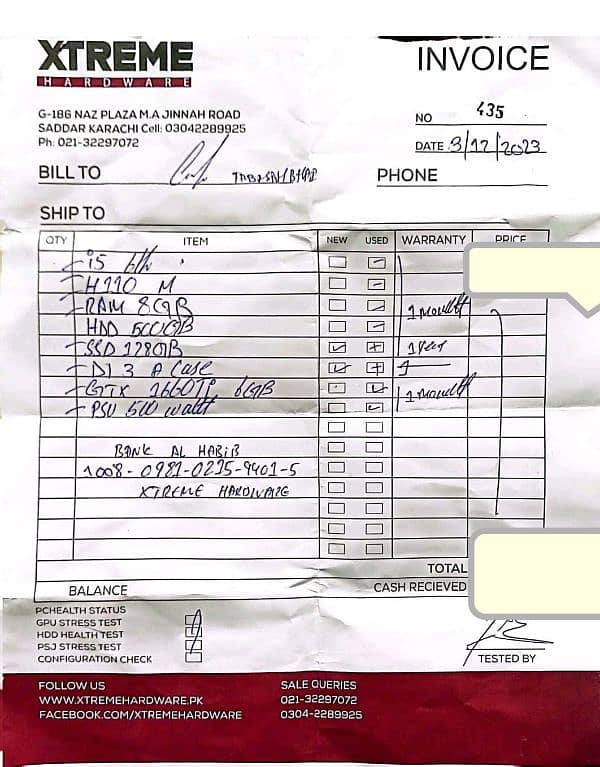 XTREME
HARDWARE
INVOICE
G-186 NAZ PLAZA M.A JINNAH ROAD
SADDAR KARACHI Cell: 03042289925
Ph: 021-32297072
NO 435
DATE 9/12/2023
BILL TO
PHONE
SHIP TO
QTY ITEM NEW USED WARRANTY PRICE
i5 6th
H110 M
RAM 8GB 1 month
HDD 500GB
SSD 128GB 1 year
D13 A Case
GTX 1660TI 6GB 1 month
PSU 500 watt
BANK AL HABIB
1008-0981-0235-9401-5
XTREME HARDWARE
TOTAL
BALANCE CASH RECIEVED
PCHEALTH STATUS
GPU STRESS TEST
HDD HEALTH TEST
PSJ STRESS TEST
CONFIGURATION CHECK
TESTED BY
FOLLOW US
WWW.XTREMEHARDWARE.PK
FACEBOOK.COM/XTREMEHARDWARE
SALE QUERIES
021-32297072
0304-2289925